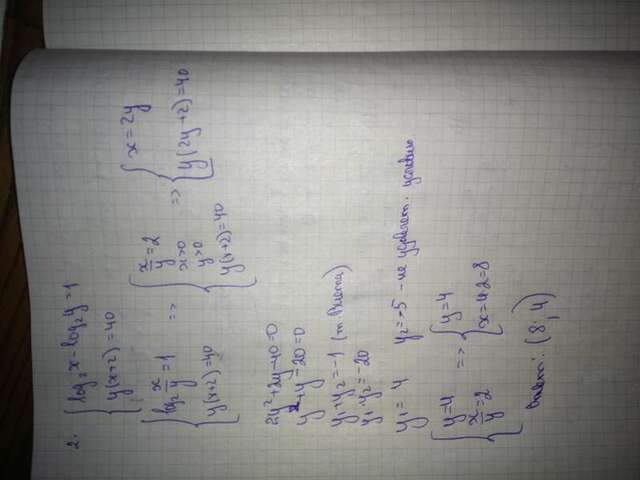 2. { log₂x - log₂y = 1
y(x+2) = 40
{ log₂ x/y = 1
y(x+2) = 40
=> { x/y = 2
x>0
y>0
y(x+2) = 40
=> { x = 2y
y(2y+2) = 40
2y²+2y-40=0
y²+y-20=0
y₁+y₂=-1 (т. Виета)
y₁·y₂=-20
y₁=4 y₂=-5 - не удовлет. условию
{ y=4
x/y=2
=> { y=4
x=4·2=8
Ответ: (8; 4)